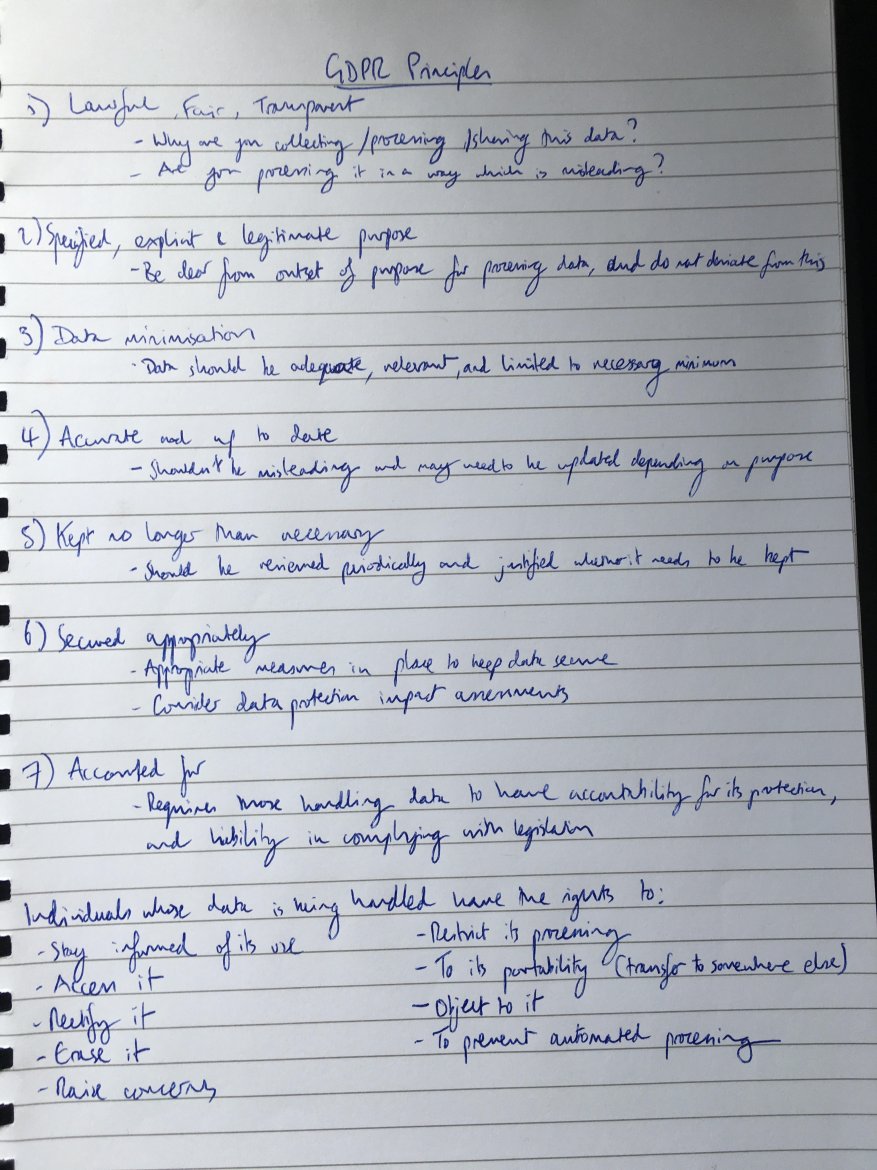 GDPR Principles
1) Lawful, Fair, Transparent
- Why are you collecting /processing /sharing this data?
- Are you processing it in a way which is misleading?
2) Specified, explicit & legitimate purpose
- Be clear from outset of purpose for processing data, and do not deviate from this
3) Data minimisation
- Data should be adequate, relevant, and limited to necessary minimum
4) Accurate and up to date
- Shouldn't be misleading and may need to be updated depending on purpose
5) Kept no longer than necessary
- Should be reviewed periodically and justified whether it needs to be kept
6) Secured appropriately
- Appropriate measures in place to keep data secure
- Consider data protection impact assessments
7) Accounted for
- Requires those handling data to have accountability for its protection,
and liability in complying with legislation
Individuals whose data is being handled have the rights to:
- Stay informed of its use
- Access it
- Rectify it
- Erase it
- Raise concerns
- Restrict its processing
- To its portability (transfer to somewhere else)
- Object to it
- To prevent automated processing